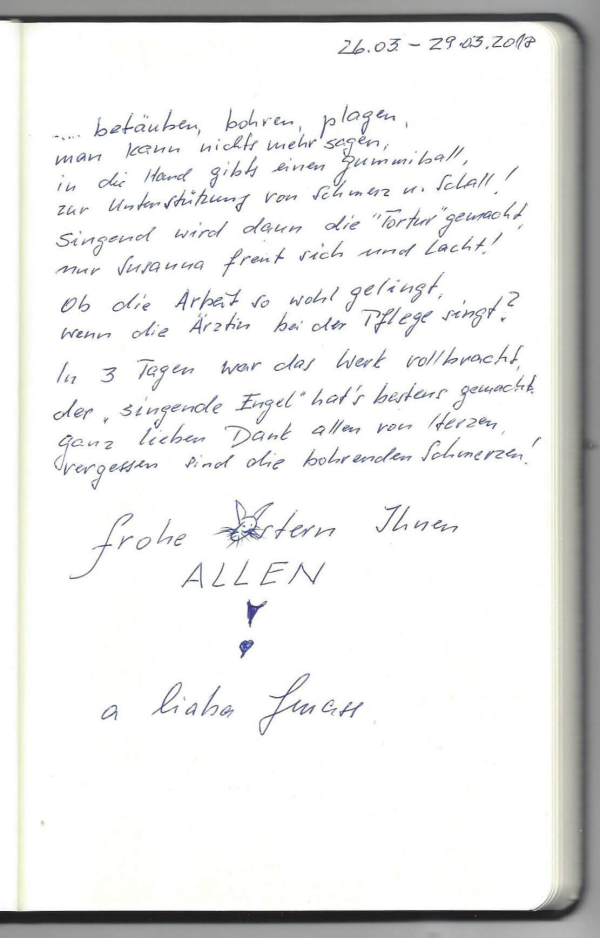 26.03. - 29.03.2018
.... betäuben, bohren, plagen,
man kann nichts mehr sagen,
in die Hand gibts einen Gummiball,
zur Unterstützung von Schmerz u. Schall!
Singend wird dann die "Tortur" gemacht,
nur Susanna freut sich und lacht!
Ob die Arbeit so wohl gelingt,
wenn die Ärztin bei der Pflege singt?
In 3 Tagen war das Werk vollbracht,
der "singende Engel" hat's bestens gemacht.
ganz lieben Dank allen von Herzen,
vergessen sind die bohrenden Schmerzen!
frohe Ostern Ihnen
ALLEN
!
a liaba